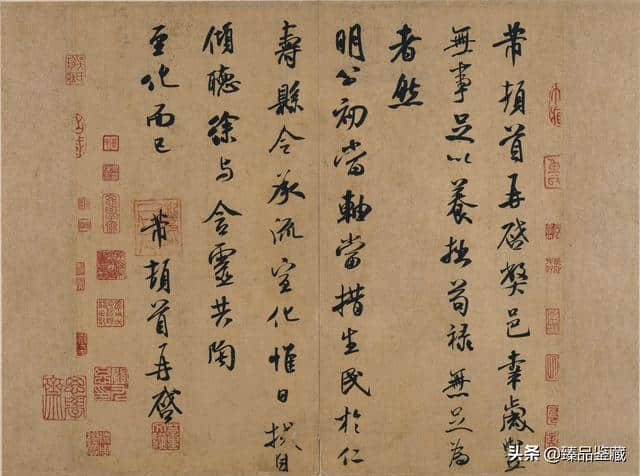 芾頓首再啓弊邑幸歲豐
無事足以養拙苟禄無足為
者然
明公初當軸當措生民於仁
壽縣令承流宣化惟日拭目
傾聽徐与含靈共陶
至化而已
芾頓首再啓
头条 @臻品鉴藏